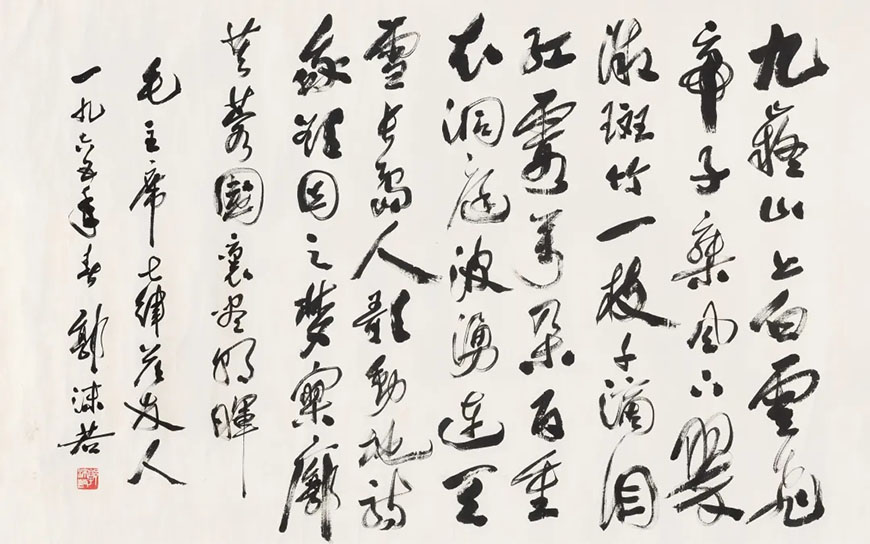 九嶷山上白雲飛
帝子乘風下翠
微斑竹一枝千滴泪
紅霞萬朵百重
衣洞庭波湧連天
雪長島人歌動地詩
我欲因之夢寥廓
芙蓉國裏尽朝暉
毛主席七律答友人
一九六五年春 郭沫若